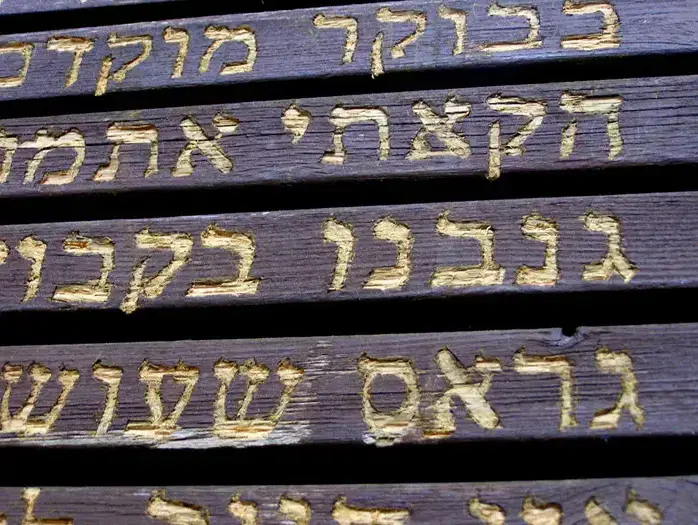 בבוקר מוקד
הקאתי אתמ
גנבנו בקבו
גראס שעוש